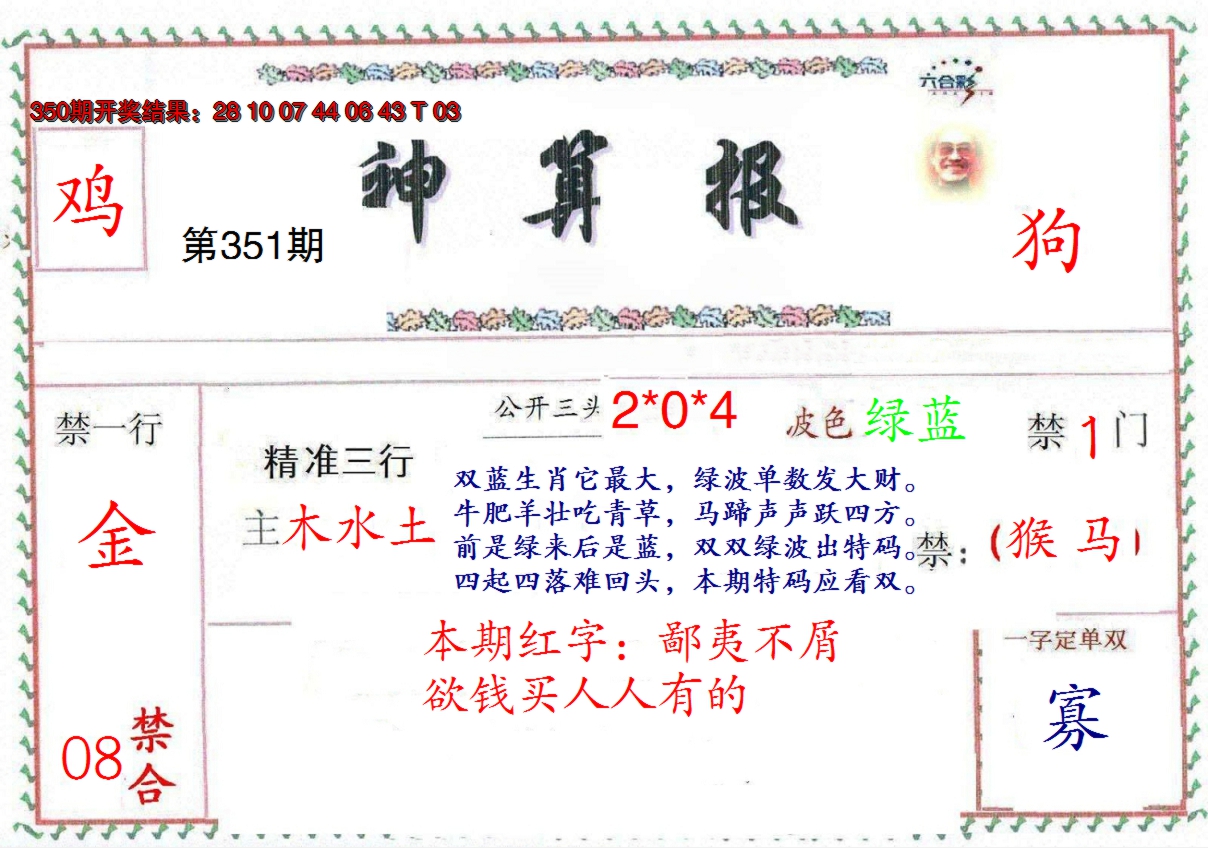 六合彩
350期开奖结果：28 10 07 44 06 43 T 03
鸡
第351期
神算报
狗
禁一行
金
08
禁合
精准三行
主木水土
公开三头 2*0*4
波色 绿蓝
禁1门
双蓝生肖它最大，绿波单数发大财。
牛肥羊壮吃青草，马蹄声声跃四方。
前是绿来后是蓝，双双绿波出特码。
四起四落难回头，本期特码应看双。
禁：（猴 马）
本期红字：鄙夷不屑
欲钱买人人有的
一字定单双
寡